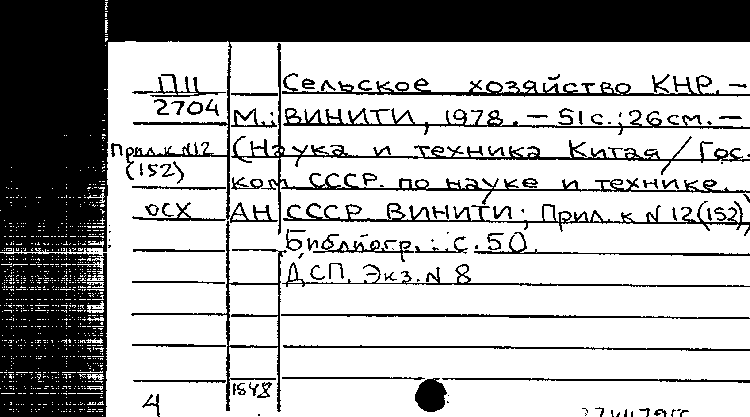 П11 Сельское хозяйство КНР. –
2704 М.: ВИНИТИ, 1978. – 51 с.; 26 см. –
Прил. к №12 (Наука и техника Китая / Гос.
(152)
ком СССР. по науке и технике.
ОСХ АН СССР ВИНИТИ; Прил. к N 12(152))
Библиогр.: с. 50.
ДСП. Экз. N 8
1548
4